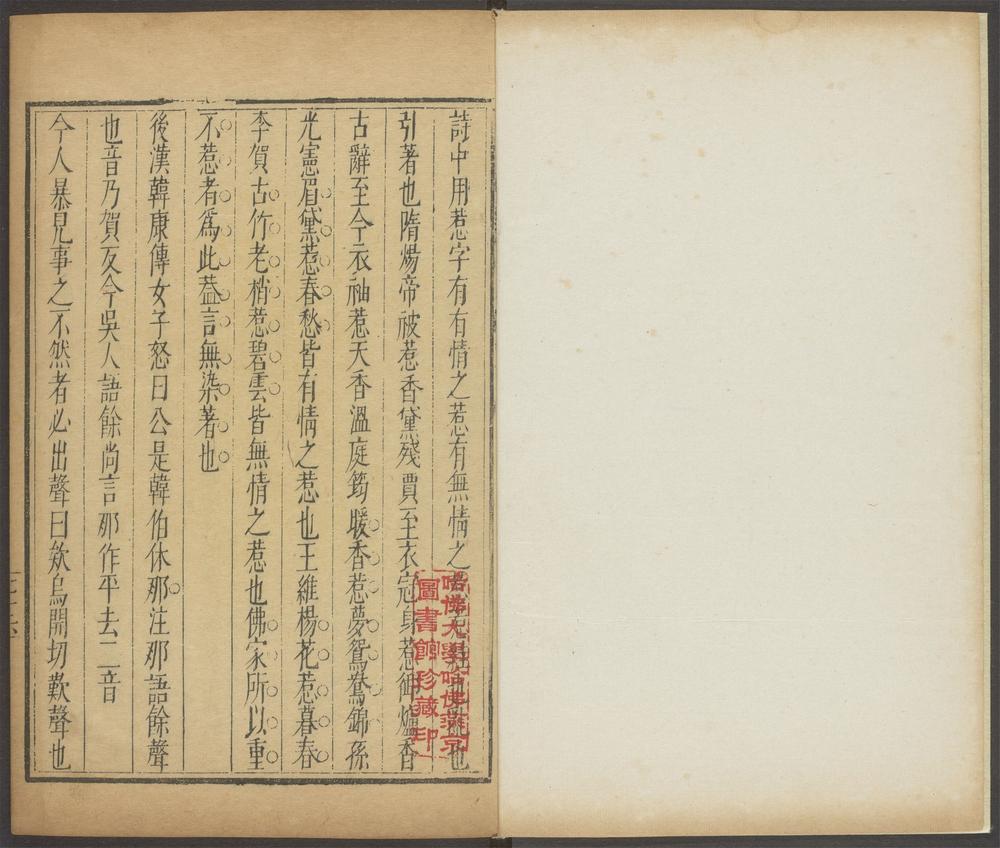 詩中用惹字有有情之惹有無情之惹惹也
引著也隋煬帝被惹香黛殘賈至衣冠身惹御爐香
古辭至今衣袖惹天香溫庭筠暖香惹夢鴛鴦錦孫
光憲眉黛惹春愁皆有情之惹也王維楊花惹暮春
李賀古竹老梢惹碧雲皆無情之惹也佛家所以重
不惹者爲此葢言無染著也
後漢韓康傳女子怒曰公是韓伯休那注那語餘聲
也音乃賀反今吳人語餘尚言那作平去二音
今人暴見事之不然者必出聲曰欸烏開切歎聲也
哈佛大學哈佛燕京
圖書館珍藏印